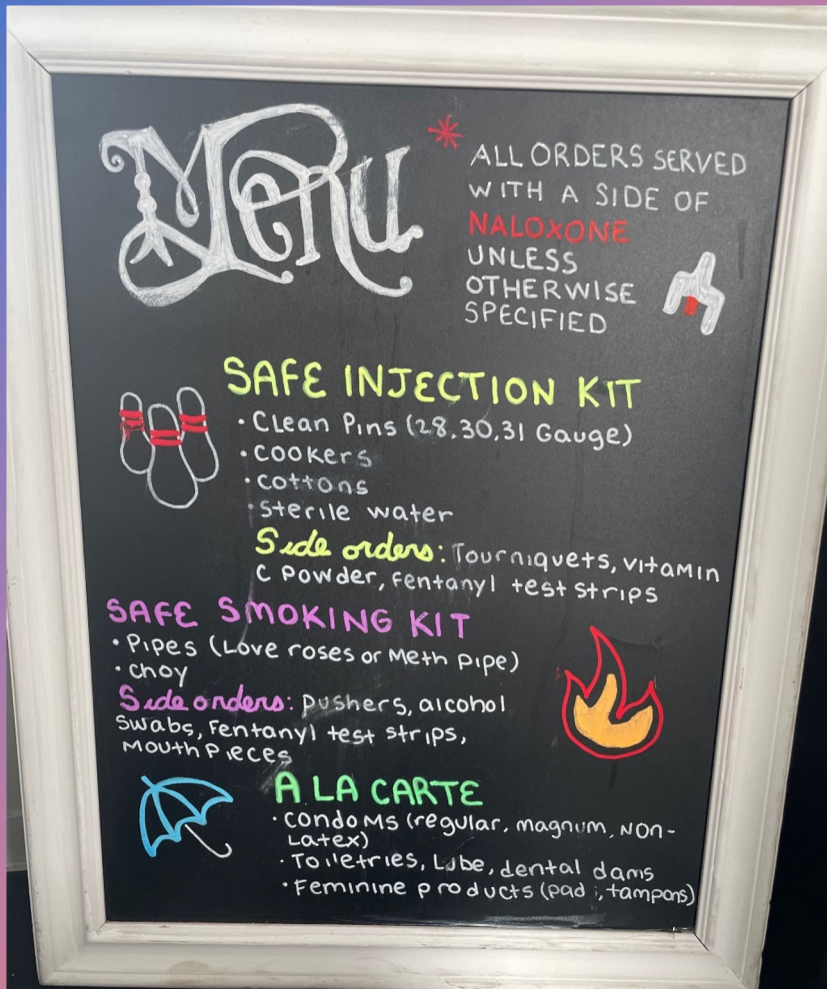 Menu
* ALL ORDERS SERVED
WITH A SIDE OF
NALOXONE
UNLESS
OTHERWISE
SPECIFIED
SAFE INJECTION KIT
• Clean Pins (28,30,31 Gauge)
• Cookers
• Cottons
• Sterile water
Side orders: Tourniquets, vitamin
C Powder, Fentanyl test strips
SAFE SMOKING KIT
• Pipes (Love roses or Meth Pipe)
• Choy
Side orders: Pushers, alcohol
Swabs, Fentanyl test strips,
Mouth Pieces
A LA CARTE
• Condoms (regular, magnum, Non-
Latex)
• Toiletries, Lube, dental dams
• Feminine products (pad , tampons)